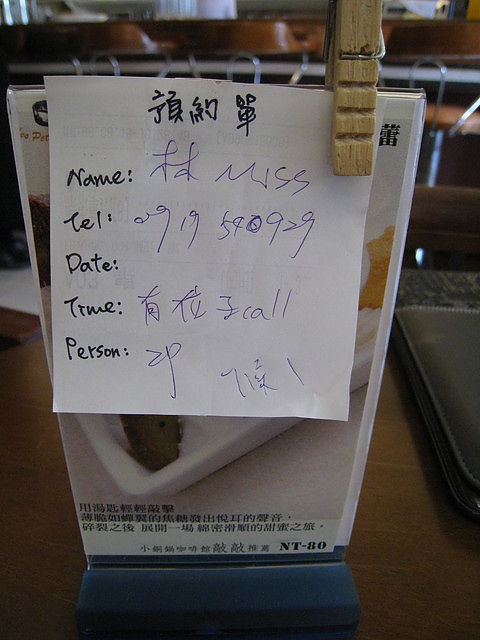 預約單
Name: 林 Miss
Tel: 0919 540929
Date:
Time: 有位子call
Person: 2P
候1
蕾
用湯匙輕輕敲擊
薄脆如蟬翼的焦糖發出悅耳的聲音，
碎裂之後 展開一場 綿密滑順的甜蜜之旅。
小銅鍋咖啡館 敲敲 推薦 NT-80